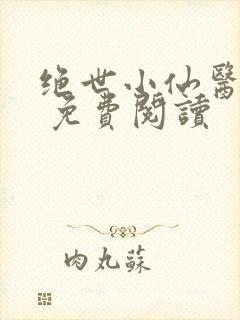 绝世小仙醫
免費閱讀
肉丸蘇